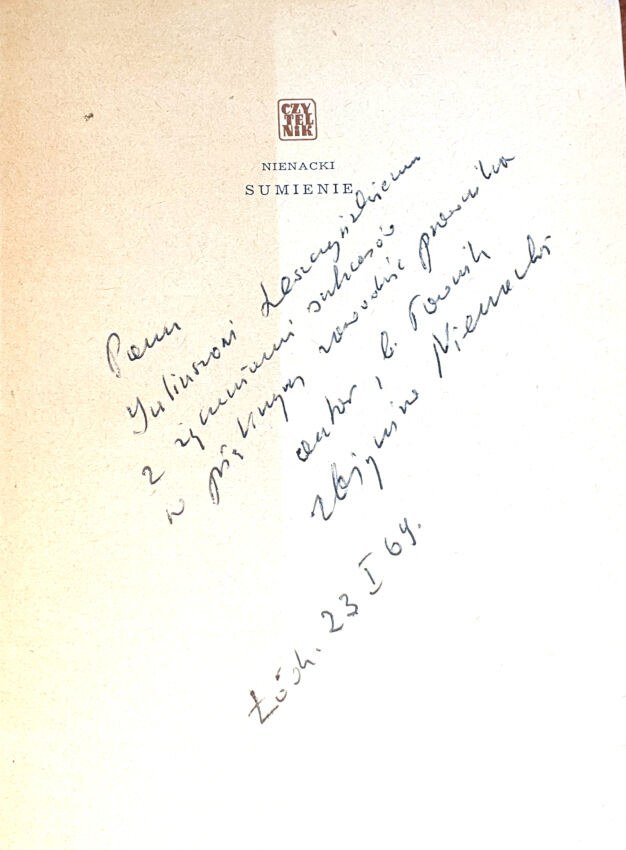 CZY
TEL
NIK
NIENACKI
SUMIENIE
Panu
Juliuszowi Leszczyńskiemu
z życzeniami sukcesów
w pięknym zawodzie prawnika
autor i b. Ławnik
Zbigniew Nienacki
Łódź. 23 I 69.